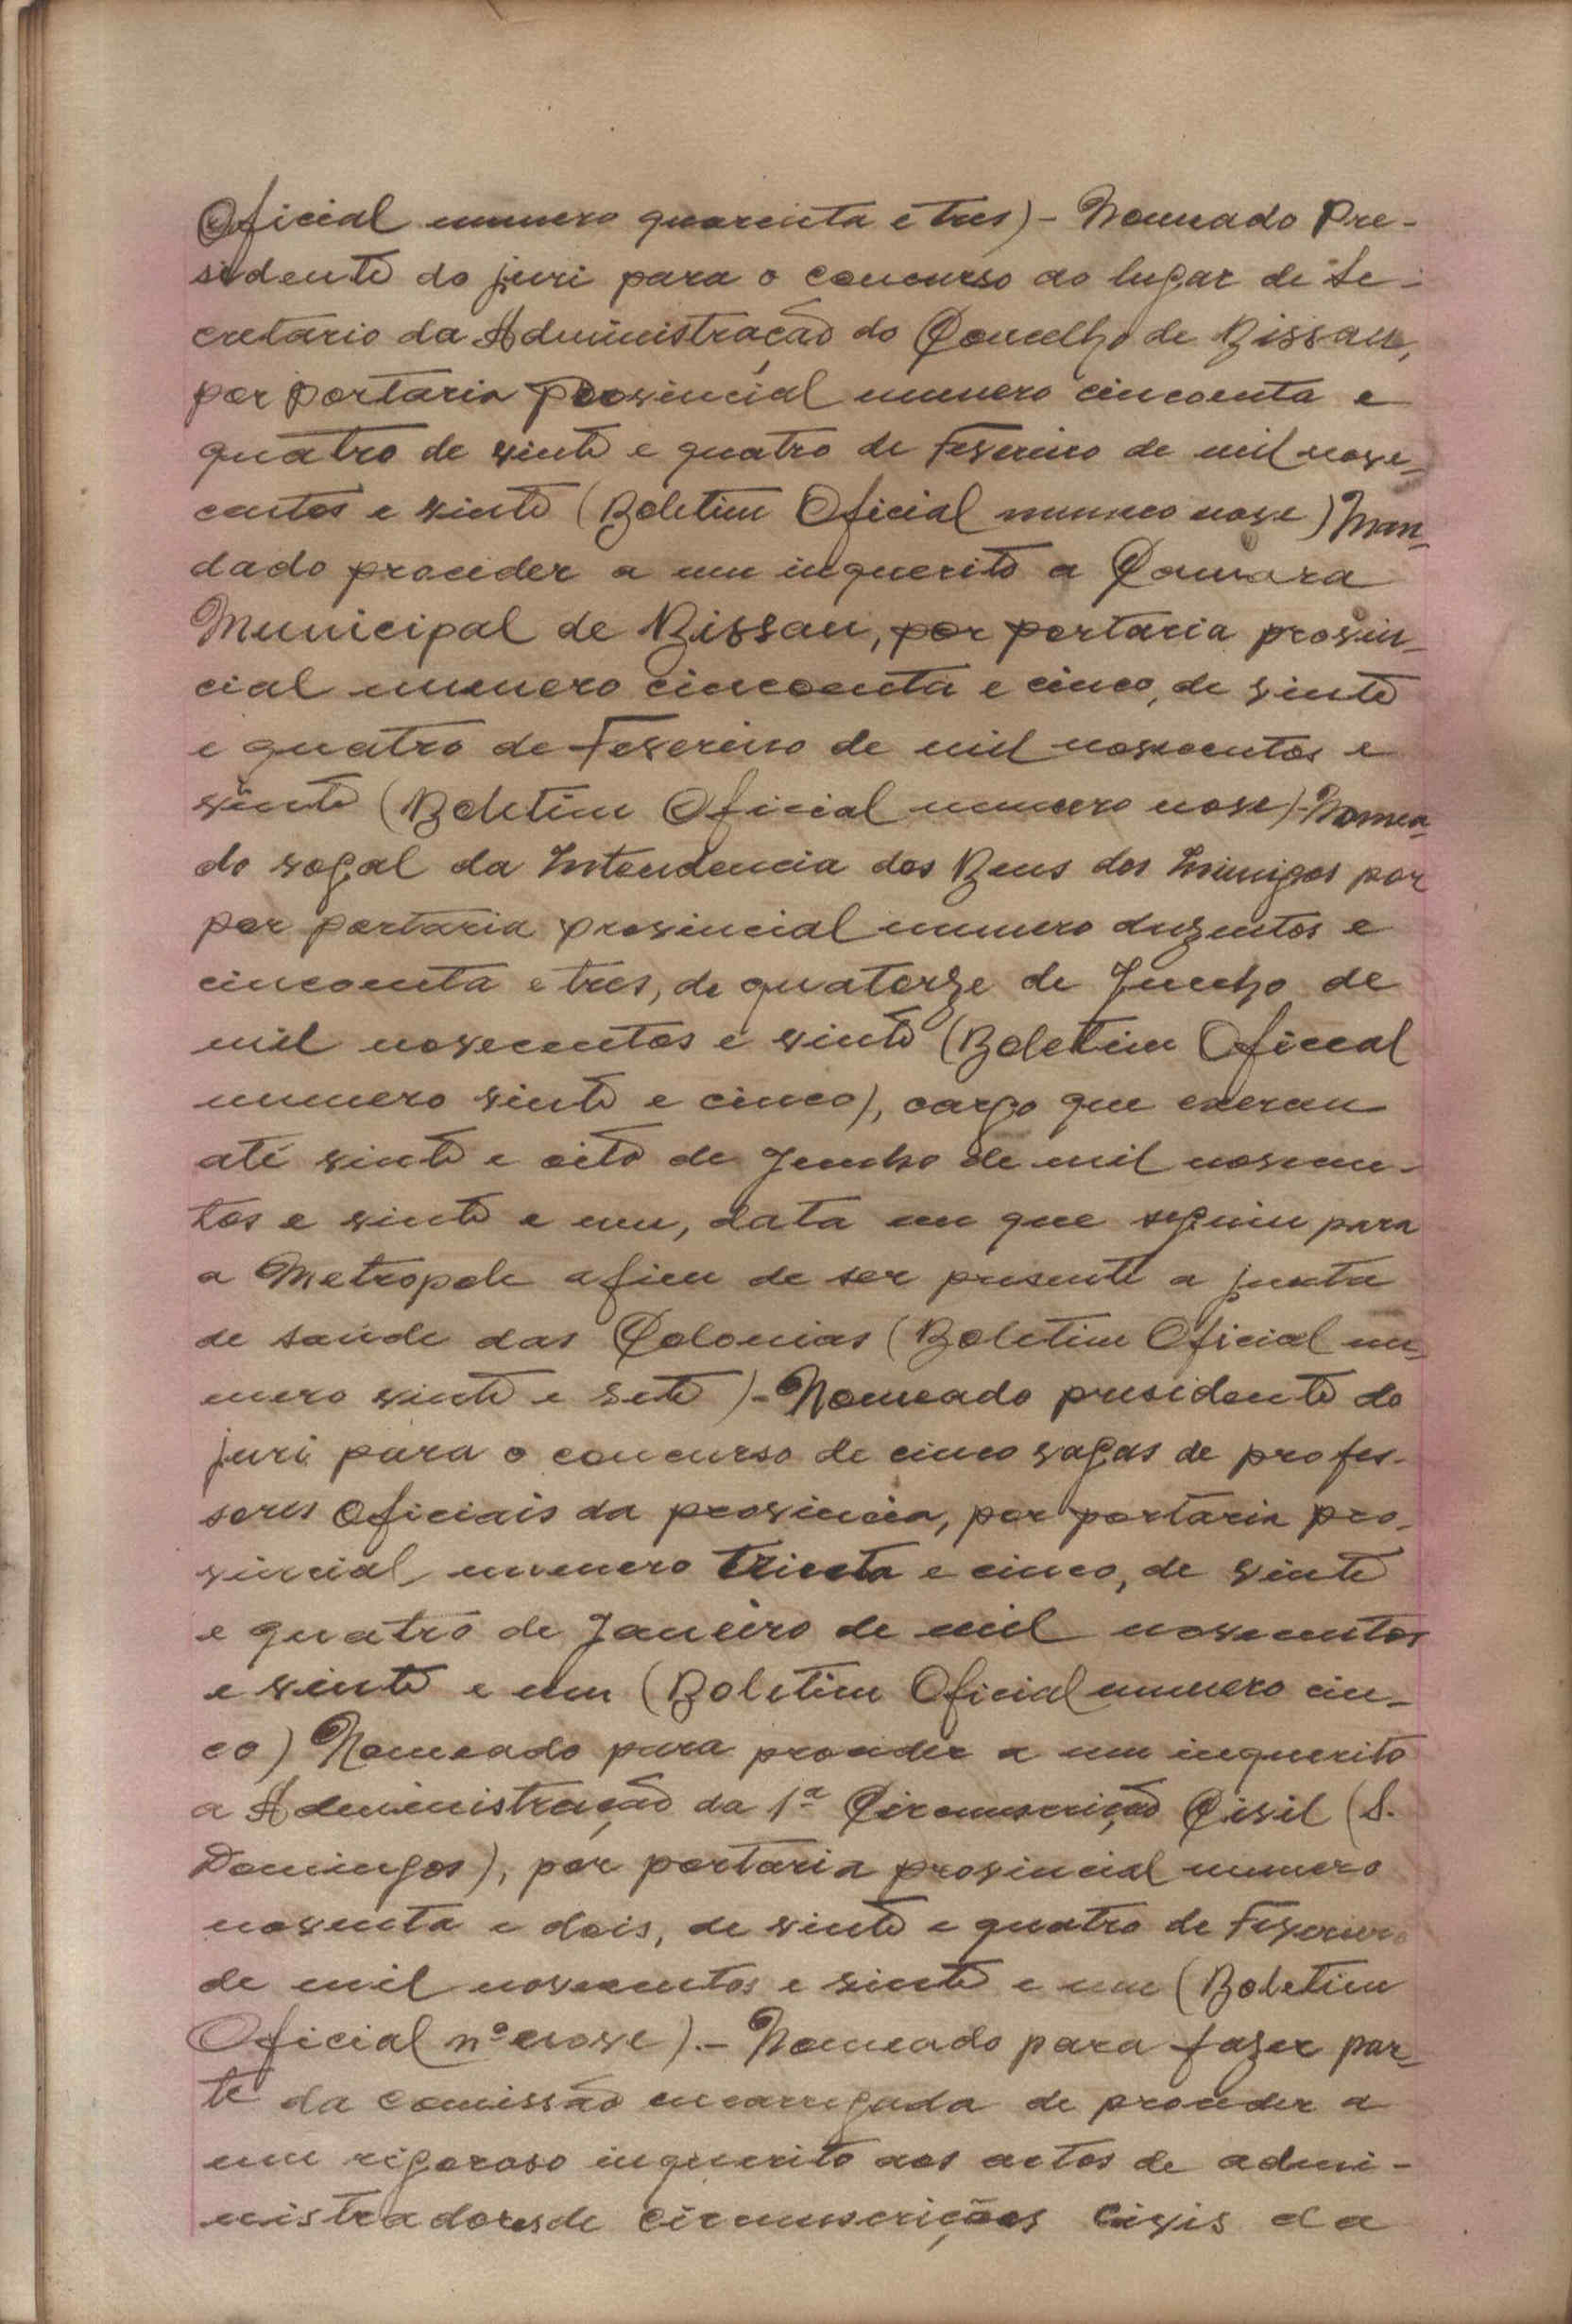 Oficial numero quarenta e tres) - Nomeado Pre-
sidente do juri para o concurso ao lugar de Se-
cretario da Administração do Concelho de Bissau,
por portaria provincial numero cincoenta e
quatro de vinte e quatro de Fevereiro de mil nove-
centos e vinte (Boletim Oficial numero nove) Man-
dado proceder a um inquerito a Camara
Municipal de Bissau, por portaria provin-
cial numero cincoenta e cinco, de vinte
e quatro de Fevereiro de mil novecentos e
vinte (Boletim Oficial numero nove) - Nomea-
do vogal da Intendencia dos Bens dos Inimigos por
por portaria provincial numero duzentos e
cincoenta e tres, de quatorze de Junho de
mil novecentos e vinte (Boletim Oficial
numero vinte e cinco), cargo que exerceu
até vinte e oito de Junho de mil novecen-
tos e vinte e um, data em que seguiu para
a Metropole afim de ser presente a junta
de saúde das Colonias (Boletim Oficial nu-
mero vinte e sete) - Nomeado presidente do
juri para o concurso de cinco vagas de profes-
sores Oficiais da provincia, por portaria pro-
vincial numero trinta e cinco, de vinte
e quatro de Janeiro de mil novecentos
e vinte e um (Boletim Oficial numero cin-
co) Nomeado para proceder a um inquerito
a Administração da 1ª Circunscrição Civil (S.
Domingos), por portaria provincial numero
noventa e dois, de vinte e quatro de Fevereiro
de mil novecentos e vinte e um (Boletim
Oficial nº nove). - Nomeado para fazer par-
te da comissão encarregada de proceder a
um rigoroso inquerito aos actos de admi-
nistradores de circunscrições civis da